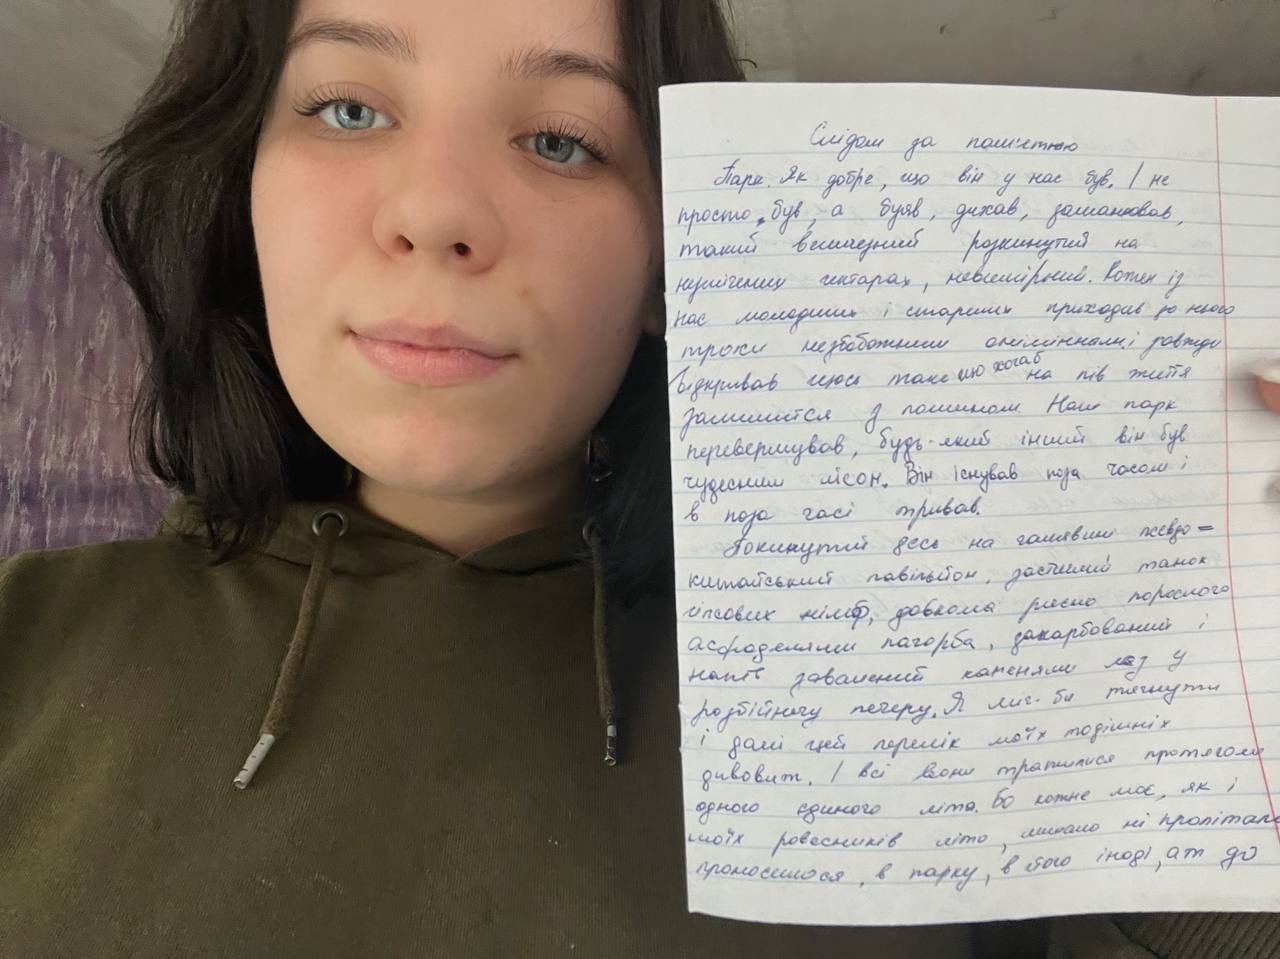 Слідом за пам'яттю
Парк. Як добре, що він у нас був. І не
просто був, а буяв, дихав, заманював,
такий величезний розкинутий на
гектарах, невимірний. Кожен із
нас молодших і старших приходив до нього
трохи незбагненним і завжди
відкривав щось таке що хоча б на пів життя
залишиться з
перевершував, будь-який інший він був
чудесним лісом. Він існував поза часом і
в поза часі тривав.
Покинутий десь на галявині псевдо=
китайський павільйон, застиглий танок
гіпсових німф, довкола рясно порослого
асфоделями пагорба, закарбований і
напів завалений каменями лаз у
розбійничу печеру. Я міг би тягнути
і далі цей перелік моїх тодішніх
дивовиж. І всі вони трапилися протягом
одного єдиного літа. Бо кожне моє, як і
моїх ровесників літо, минало ні пролітало
проносилося, в парку, в його іноді, аж до